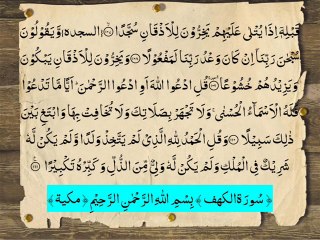 قَبْلِهٖۤ اِذَا یُتْلٰى عَلَیْهِمْ یَخِرُّوْنَ لِلْاَذْقَانِ سُجَّدًا ﴿۱۰۷﴾ (السجدة) وَّ یَقُوْلُوْنَ
سُبْحٰنَ رَبِّنَاۤ اِنْ كَانَ وَعْدُ رَبِّنَا لَمَفْعُوْلًا ﴿۱۰۸﴾ وَ یَخِرُّوْنَ لِلْاَذْقَانِ یَبْكُوْنَ
وَ یَزِیْدُهُمْ خُشُوْعًا ﴿۱۰۹﴾ قُلِ ادْعُوا اللّٰهَ اَوِ ادْعُوا الرَّحْمٰنَ ؕ اَیًّا مَّا تَدْعُوْا
فَلَهُ الْاَسْمَآءُ الْحُسْنٰى ۚ وَ لَا تَجْهَرْ بِصَلَاتِكَ وَ لَا تُخَافِتْ بِهَا وَ ابْتَغِ بَیْنَ
ذٰلِكَ سَبِیْلًا ﴿۱۱۰﴾ وَ قُلِ الْحَمْدُ لِلّٰهِ الَّذِیْ لَمْ یَتَّخِذْ وَلَدًا وَّ لَمْ یَكُنْ لَّهٗ
شَرِیْكٌ فِی الْمُلْكِ وَ لَمْ یَكُنْ لَّهٗ وَلِیٌّ مِّنَ الذُّلِّ وَ كَبِّرْهُ تَكْبِیْرًا ﴿۱۱۱﴾
﴿ سُورَة الكهف ﴾ بِسْمِ اللّٰهِ الرَّحْمٰنِ الرَّحِیْمِ ﴿ مكية ﴾